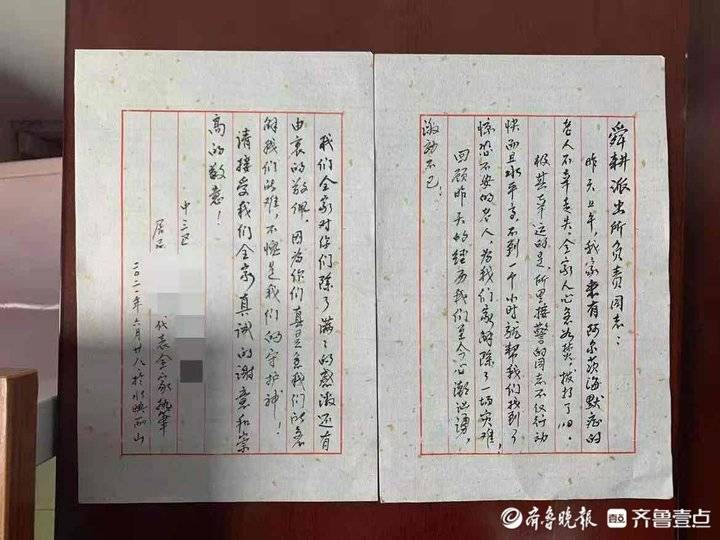 舜耕派出所负责同志：
昨天上午，我家患有阿尔茨海默症的
老人不幸走失，全家人心急如焚，拨打了110.
极其幸运的是，所里接警的同志不仅行动
快而且水平高，不到一个小时就帮我们找到了
惊恐不安的老人，为我们家解除了一场灾难，
回顾昨天的经历我们至今心潮汹涌，
激动不已：
我们全家对你们除了满满的感激还有
由衷的敬佩，因为你们真是急我们所急
解我们所难，不愧是我们的守护神！
请接受我们全家真诚的谢意和崇
高的敬意！
中二区
居民
代表全家执笔
二〇二一年六月廿八于水映丽山
齐鲁晚报 齐鲁壹点